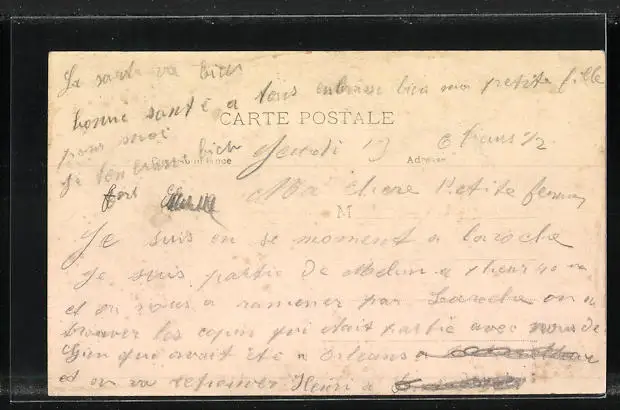 La santé va bien
bonne santé a tous embrasse bien ma petite fille
pour moi
CARTE POSTALE
Je t'embrasse bien
fort
Correspondance
Adresse
Jeudi 13 6 heures 1/2
Ma chere Petite femme
M
Je suis en se moment a laroche
Je suis partie de Melun a 1 heure 40
et on nous a ramener par Laroche on a
trouver les copin qui était partie avec nous de
Gien qui avait été a Orleans a
et on va retrouver Henri a